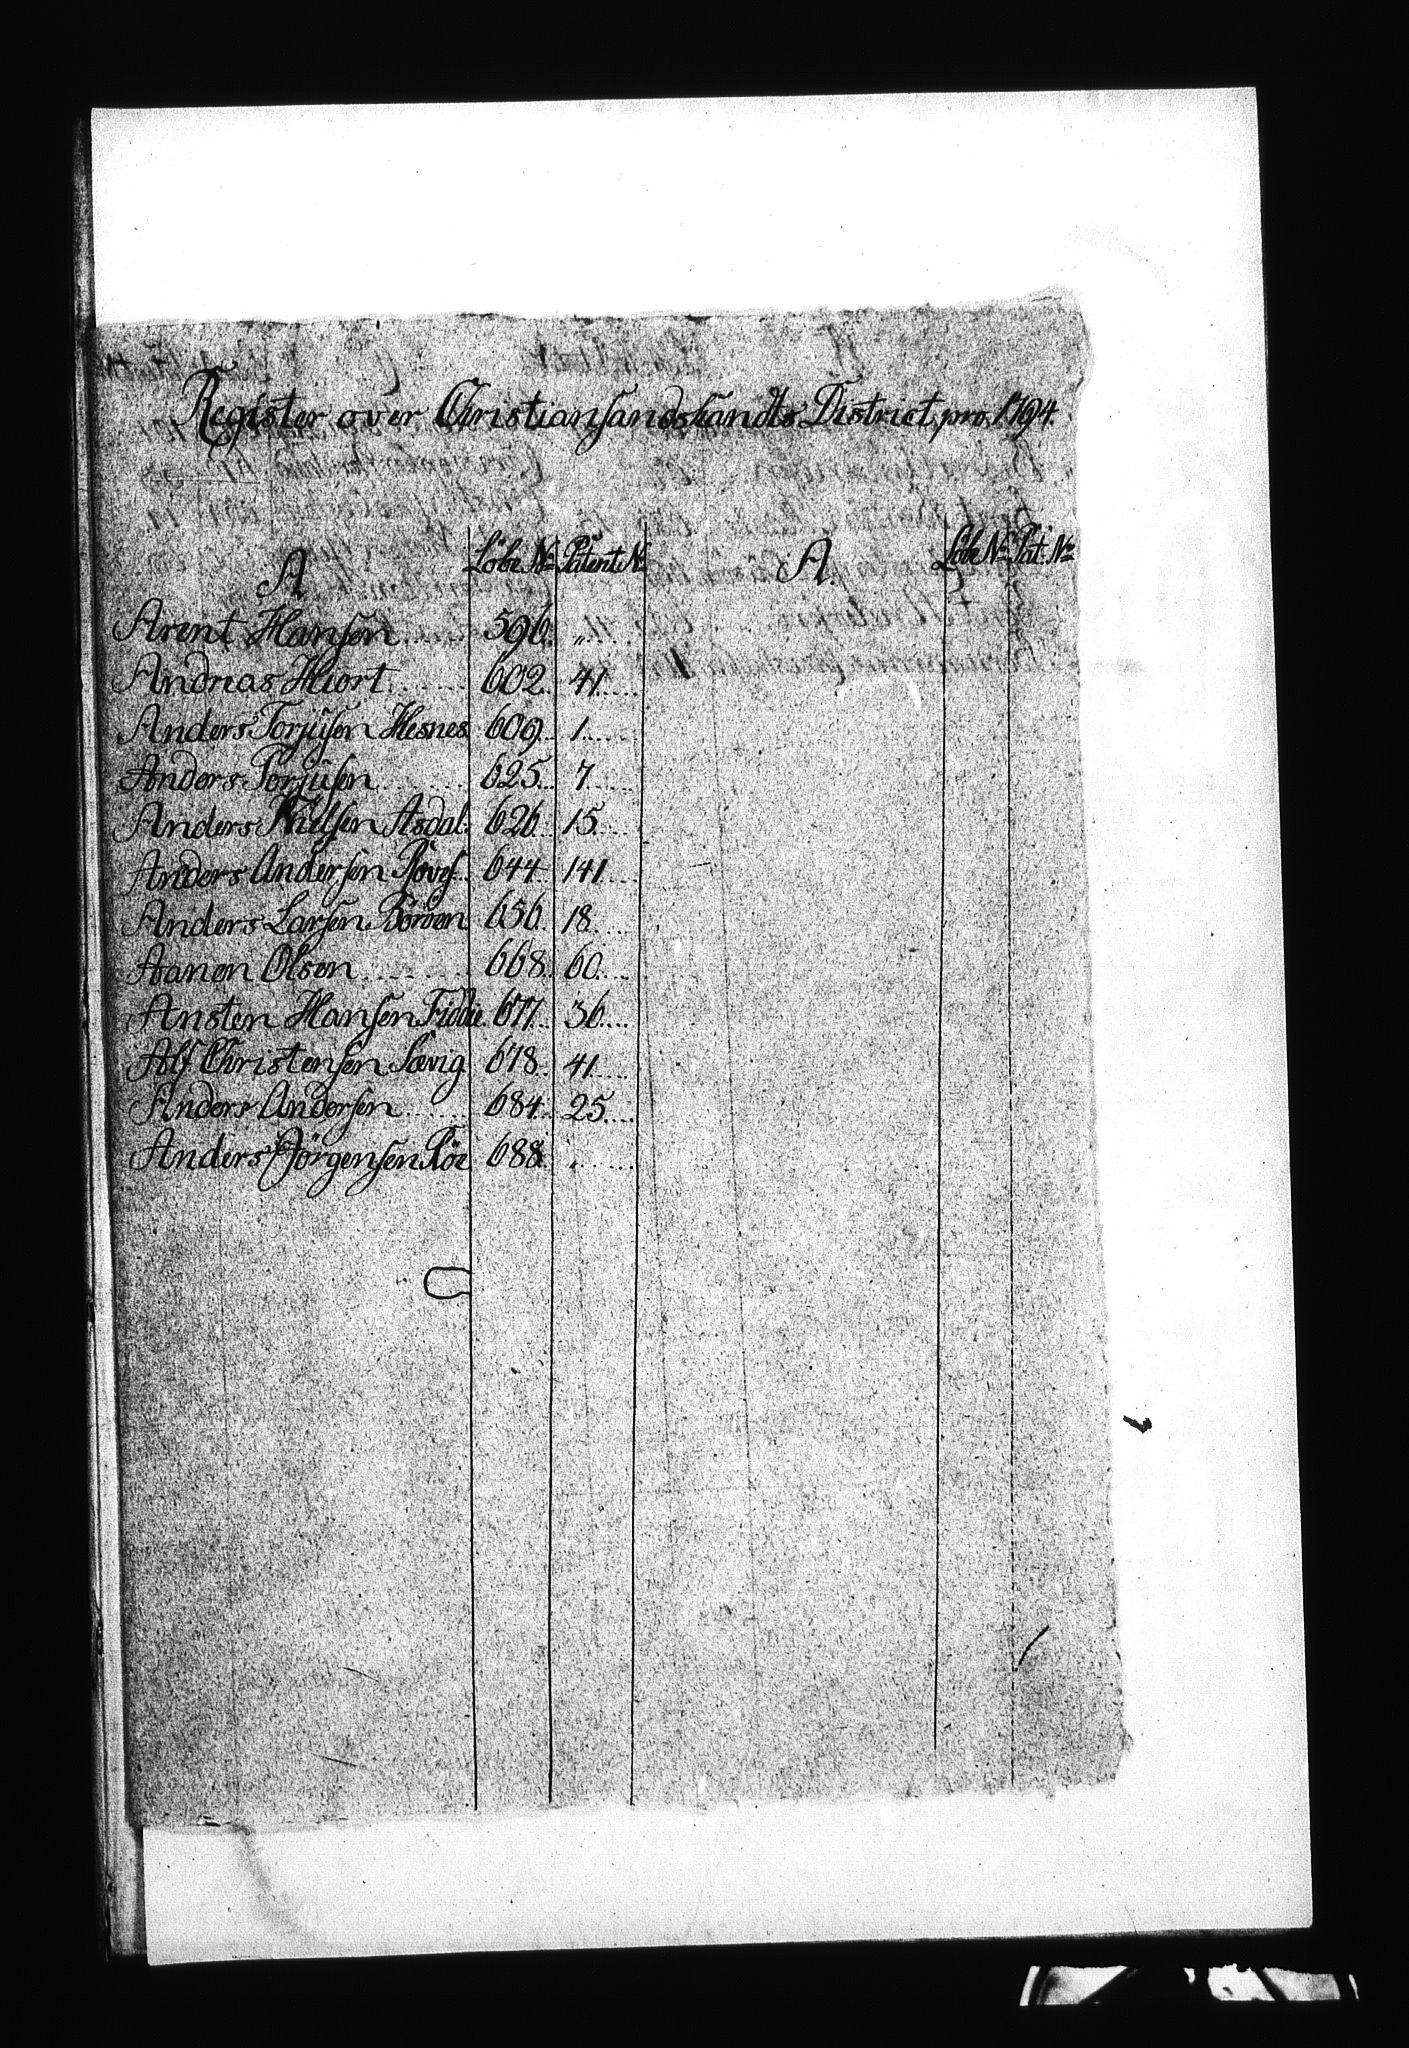 Register over Christiansandshandts District, pro. 1794.
A Löbe No Patent No A. Löbe No Pat: No
Arent Hansen 596. „
Andreas Hiort 602. 41
Anders Torjusen Hesnes 609. 1
Anders Torjusen 625. 7
Anders Nielsen Asdal. 626. 15
Anders Andersen 644 141
Anders Larsen Boröen 656. 18
Aanon Olsen 668. 60
Ansten Hansen Fidde 677. 36
Alf Christensen Sævig 678. 41
Anders Andersen 684. 25
Anders Jörgensen Röe 688 „